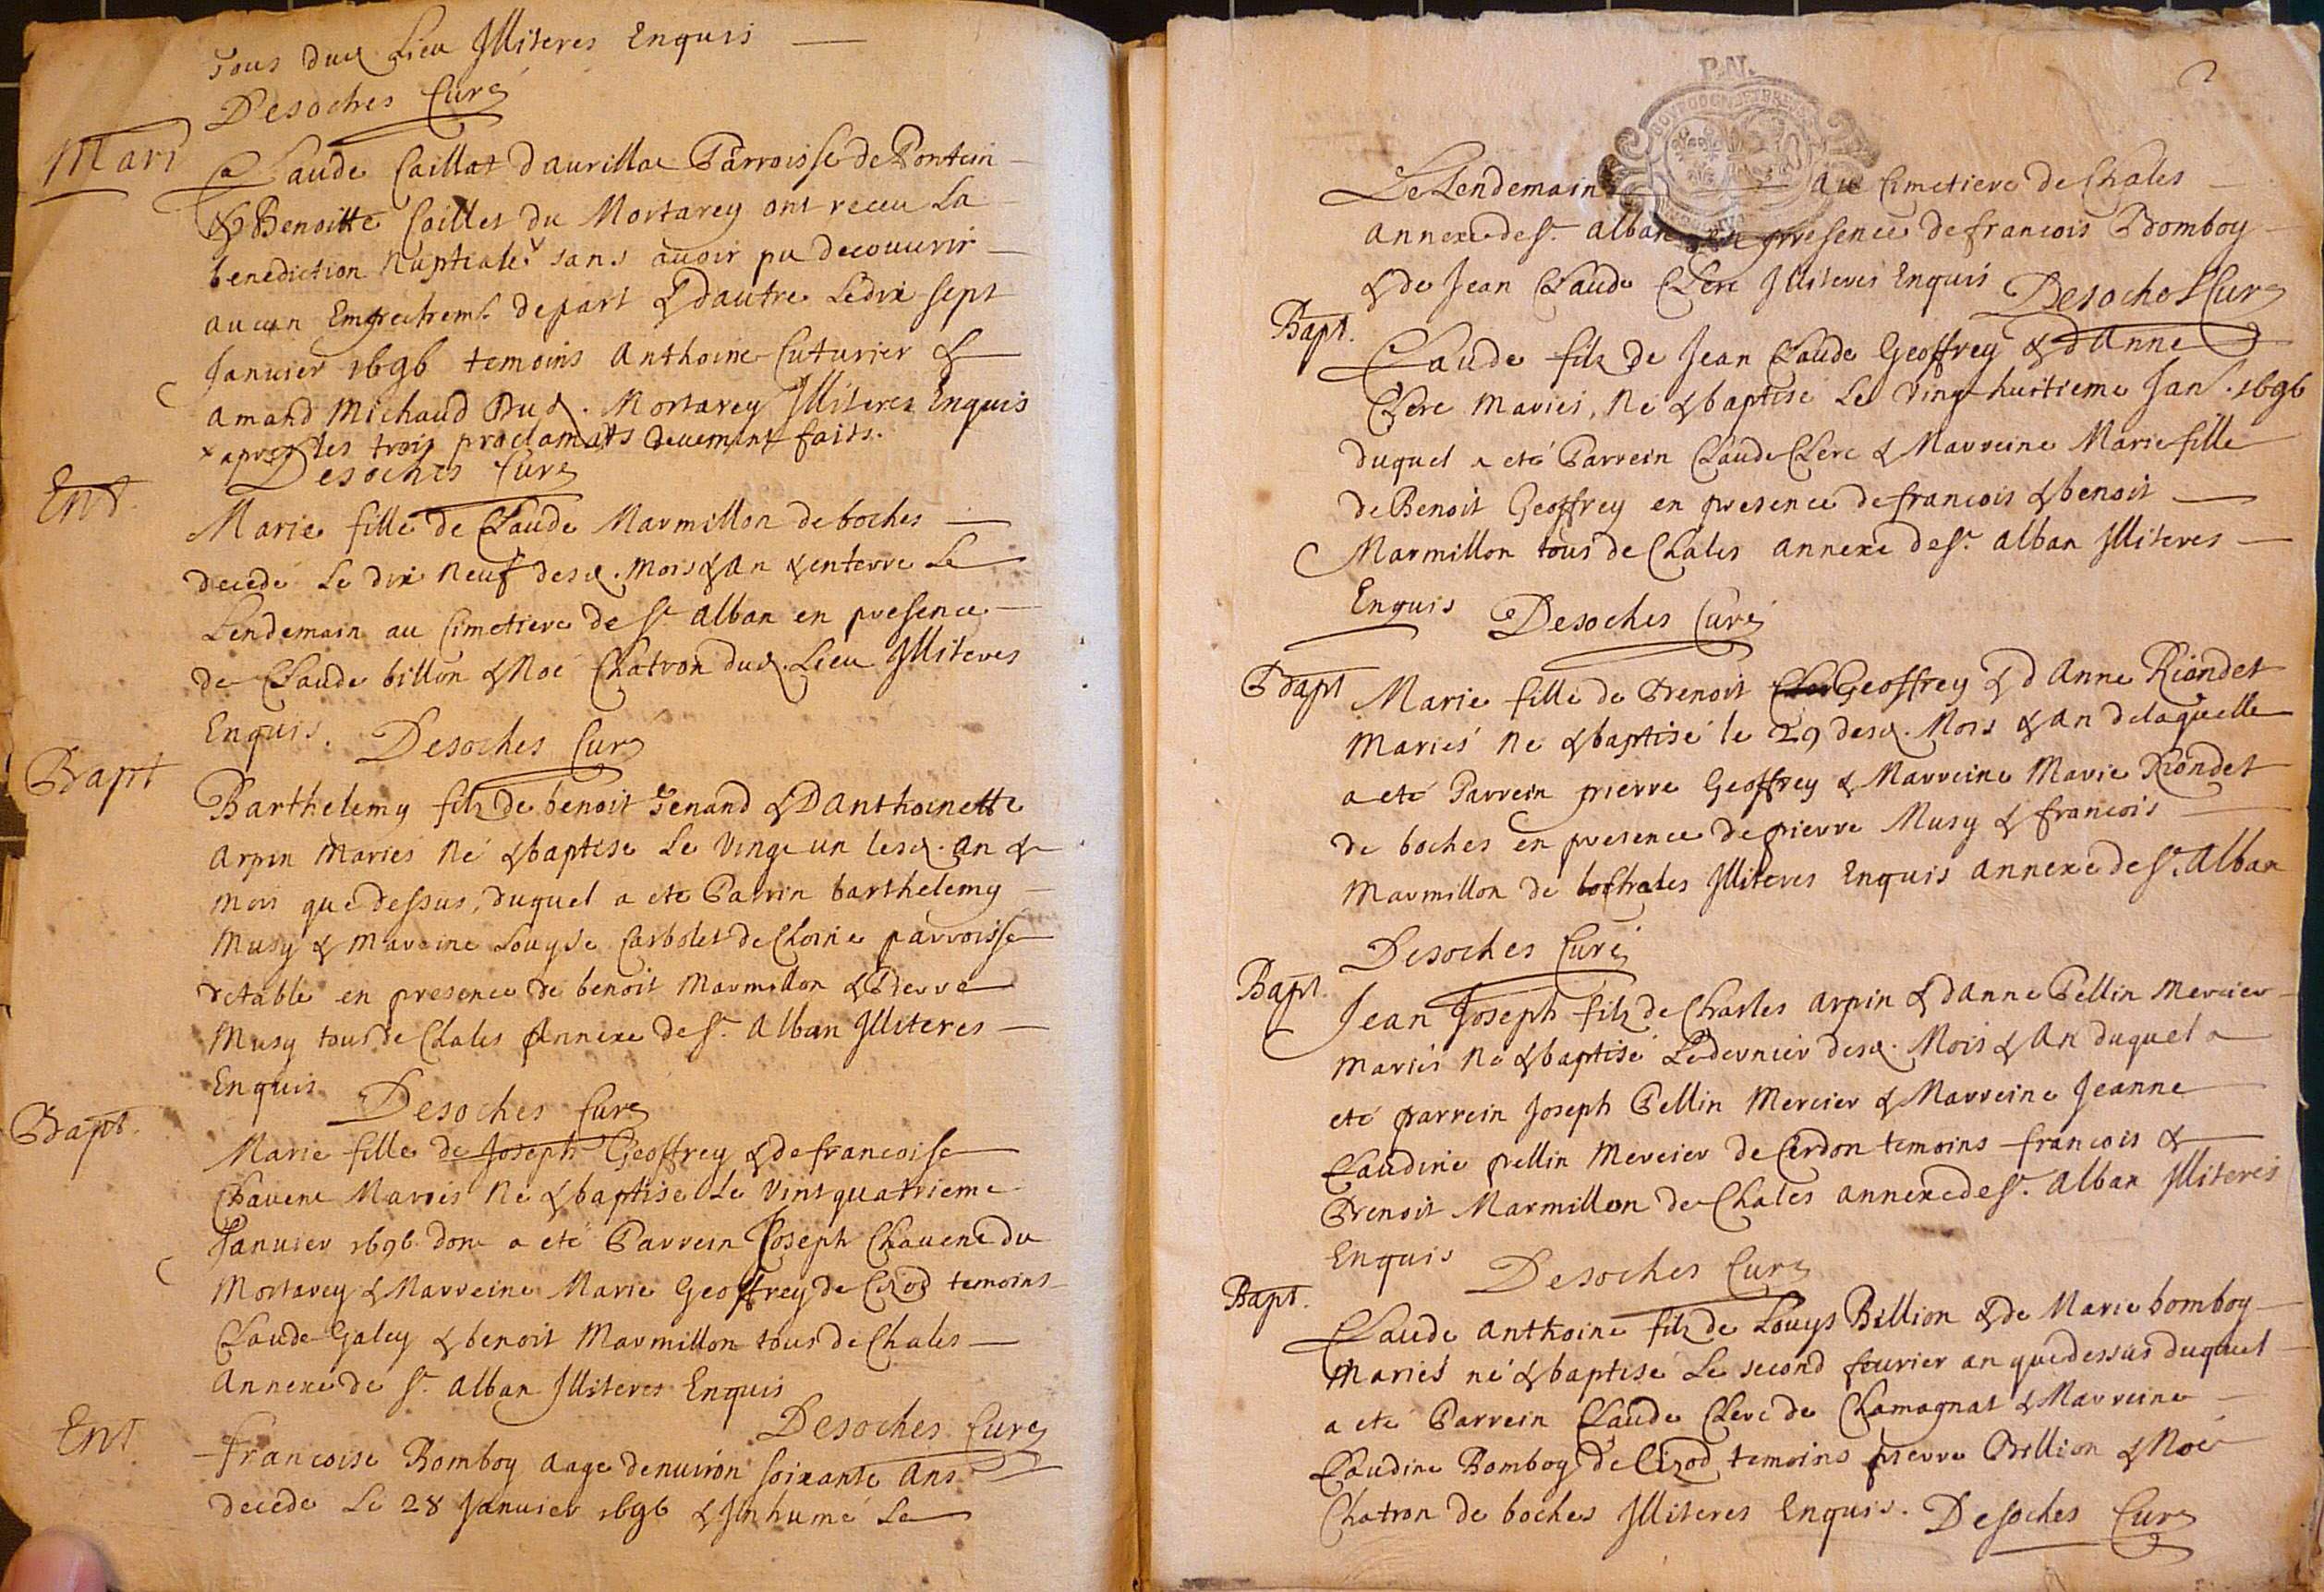 Tous dud Lieu Illiteres Enquis
Desoches Curé
Mari
Claude Caillat daurillac Parroisse de Pontein
& Benoitte Caillet du Mortarey ont receu La
benediction Nuptiale x sans auoir pu decouurir
aucun Empechemt. depart & dautre Ledix sept
Januier 1696 temoins Anthoine Cuturier &
Amand Michaud Dud. Mortarey Illiteres Enquis
x apres les trois proclamats deuement faits.
Desoches Curé
Ent.
Marie fille de Claude Marmillon de boches
decedé Le dix Neuf desd. Mois & An & enterre Le
Lendemain au Cimetiere de St. Alban en presence
de Claude billon & Noé Chatron dud. Lieu Illiteres
Enquis. Desoches Curé
Bapt
Barthelemy filz de benoit Tenand & D Anthoinette
Arpin Maries Né & baptise Le Vingt un lesd. an &
Mois que dessus, duquel a ete Parrin barthelemy
Musy & Mareine Louyse Carbolet de Choine parroisse
detable en presence de benoit Marmillon & Pierre
Musy tous de Chales Annexe de St. Alban Illiteres
Enquis Desoches Curé
Bapt.
Marie fille de Joseph Geoffrey & de francoise
Chauene Maries Né & baptise Le Vint quatrieme
Januier 1696 dont a eté Parrein Joseph Chauene du
Mortarey & Marreine Marie Geoffrey de Cizod temoins
Claude Galey & benoit Marmillon tous de Chales
Annexe de St. Alban Illiteres Enquis
Desoches Curé
Ent
francoise Bomboy aage denuiron soixante Ans
decede Le 28 Januier 1696 & Jnhumé Le
P.N.
2
Le Lendemain au Cimetiere de Chales
annexe de St. Alban en presence de francois Bomboy
& de Jean Claude Clerc Illiteres Enquis Desoches Curé
Bapt.
Claude filz de Jean Claude Geoffrey & d Anne
Clerc Maries, Né & baptisé Le Vingt huitieme Janr. 1696
duquel a eté Parrein Claude Clerc & Marreine Marie fille
de Benoit Geoffrey en presence de francois & benoit
Marmillon tous de Chales annexe de St. Alban Illiteres
Enquis Desoches Curé
Bapt
Marie fille de Benoit Geoffrey & d Anne Riondet
Mariés Né & baptisé le 29 desd. Mois & an de laquelle
a eté Parrein pierre Geoffrey & Marreine Marie Riondet
de boches en presence de pierre Musy & francois
Marmillon de Chales Illiteres Enquis annexe de St. Alban
Desoches Curé
Bapt.
Jean Joseph filz de Charles Arpin & d Anne Pellin Mercier
Mariés Né & baptisé Le dernier desd. Mois & An duquel a
eté parrein Joseph Pellin Mercier & Marreine Jeanne
Claudine pellin Mercier de Cerdon temoins francois &
Benoit Marmillon de Chales annexe de St. Alban Illiteres
Enquis Desoches Curé
Bapt.
Claude Anthoine filz de Louys Billion & de Marie bomboy
Mariés né & baptisé Le second feurier an que dessus duquel
a eté Parrein Claude Clerc de Chamagnat & Marreine
Claudine Bomboy de Cizod temoins pierre Billion & Noé
Chatron de boches Illiteres Enquis. Desoches Curé